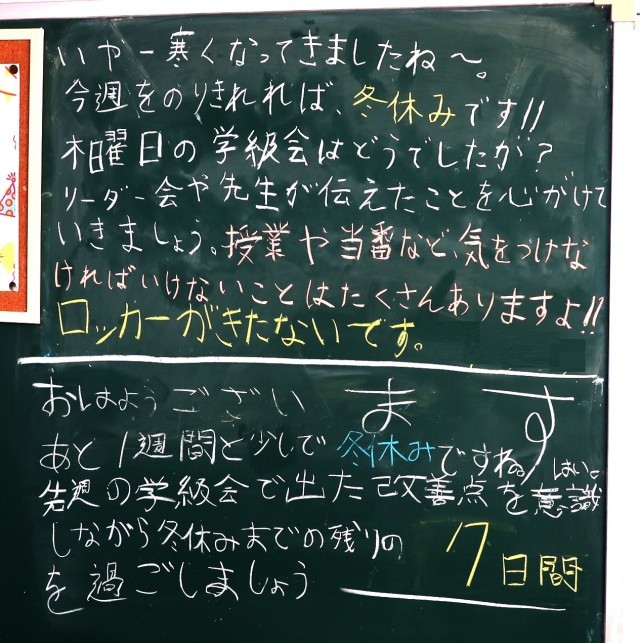 いやー寒くなってきましたね〜。
今週をのりきれれば、冬休みです!!
木曜日の学級会はどうでしたか?
リーダー会や先生が伝えたことを心がけて
いきましょう。授業や当番など、気をつけな
ければいけないことはたくさんありますよ!!
ロッカーがきたないです。
おはようございます
あと1週間と少しで冬休みですね。はい。
先週の学級会で出た改善点を意識
しながら冬休みまでの残りの7日間
を過ごしましょう